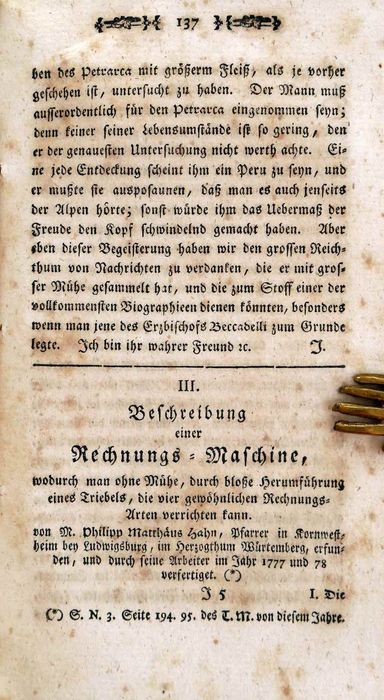 137
ben des Petrarca mit größerm Fleiß, als je vorher
geschehen ist, untersucht zu haben. Der Mann muß
ausserordentlich für den Petrarca eingenommen seyn;
denn keiner seiner Lebensumstände ist so gering, den
er der genauesten Untersuchung nicht werth achte. Ei-
ne jede Entdeckung scheint ihm ein Peru zu seyn, und
er mußte sie ausposaunen, daß man es auch jenseits
der Alpen hörte; sonst würde ihm das Uebermaß der
Freude den Kopf schwindelnd gemacht haben. Aber
eben dieser Begeisterung haben wir den grossen Reich-
thum von Nachrichten zu verdanken, die er mit gros-
ser Mühe gesammelt hat, und die zum Stoff einer der
vollkommensten Biographieen dienen könnten, besonders
wenn man jene des Erzbischofs Beccadelli zum Grunde
legte. Ich bin ihr wahrer Freund ꝛc. J.
III.
Beschreibung
einer
Rechnungs-Maschine,
wodurch man ohne Mühe, durch bloße Herumführung
eines Triebels, die vier gewöhnlichen Rechnungs-
Arten verrichten kann.
von M. Philipp Matthäus Hahn, Pfarrer in Kornwest-
heim bey Ludwigsburg, im Herzogthum Würtemberg, erfun-
den, und durch seine Arbeiter im Jahr 1777 und 78
verfertiget. (*)
J 5 I. Die
(*) S. N. 3. Seite 194. 95. des T. M. von diesem Jahre.